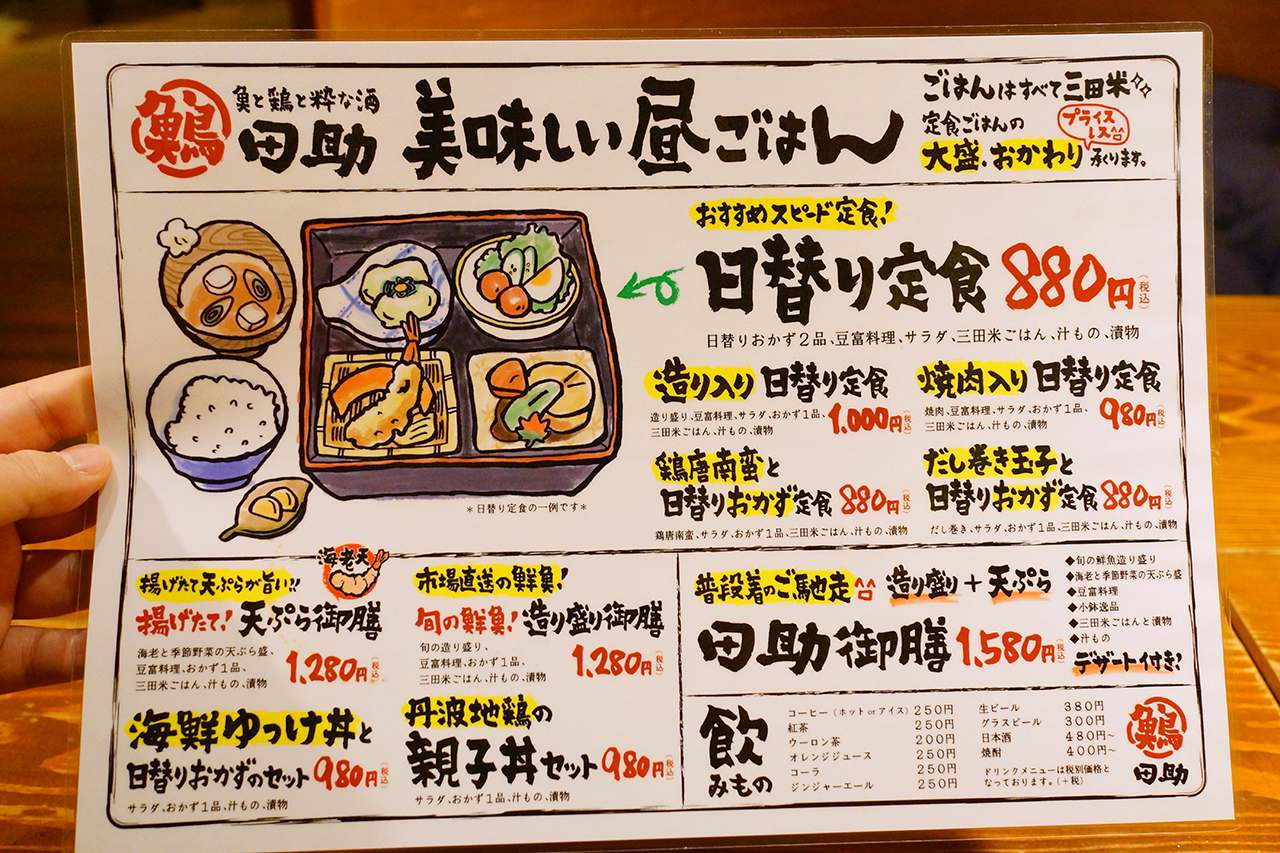 魚と鶏と粋な酒
田助
美味しい昼ごはん
ごはんはすべて三田米
定食ごはんの
プライスレス
大盛.おかわり承ります。
おすすめスピード定食!
日替り定食 880円(税込)
日替りおかず2品、豆富料理、サラダ、三田米ごはん、汁もの、漬物
造り入り 日替り定食
造り盛り、豆富料理、サラダ、おかず1品、
三田米ごはん、汁もの、漬物
1,000円(税込)
焼肉入り 日替り定食
焼肉、豆富料理、サラダ、おかず1品、
三田米ごはん、汁もの、漬物
980円(税込)
鶏唐南蛮と
日替りおかず定食 880円(税込)
鶏唐南蛮、サラダ、おかず1品、三田米ごはん、汁もの、漬物
だし巻き玉子と
日替りおかず定食 880円(税込)
だし巻き、サラダ、おかず1品、三田米ごはん、汁もの、漬物
*日替り定食の一例です*
海老天
揚げたて天ぷらが旨い!!
揚げたて! 天ぷら御膳
海老と季節野菜の天ぷら盛、
豆富料理、おかず1品、
三田米ごはん、汁もの、漬物
1,280円(税込)
市場直送の鮮魚!
旬の鮮魚! 造り盛り御膳
旬の造り盛り、
豆富料理、おかず1品、
三田米ごはん、汁もの、漬物
1,280円(税込)
海鮮ゆっけ丼と
日替りおかずのセット 980円(税込)
サラダ、おかず1品、汁もの、漬物
丹波地鶏の
親子丼セット 980円(税込)
サラダ、おかず1品、汁もの、漬物
普段着のご馳走 造り盛り+天ぷら
田助御膳 1,580円(税込)
◆旬の鮮魚造り盛り
◆海老と季節野菜の天ぷら盛
◆豆富料理
◆小鉢逸品
◆三田米ごはんと漬物
◆汁もの
デザート付き!
飲みもの
コーヒー(ホット or アイス) 250円
紅茶 250円
ウーロン茶 200円
オレンジジュース 250円
コーラ 250円
ジンジャーエール 250円
生ビール 380円
グラスビール 300円
日本酒 480円~
焼酎 400円~
ドリンクメニューは税別価格と
なっております。(+税)
田助